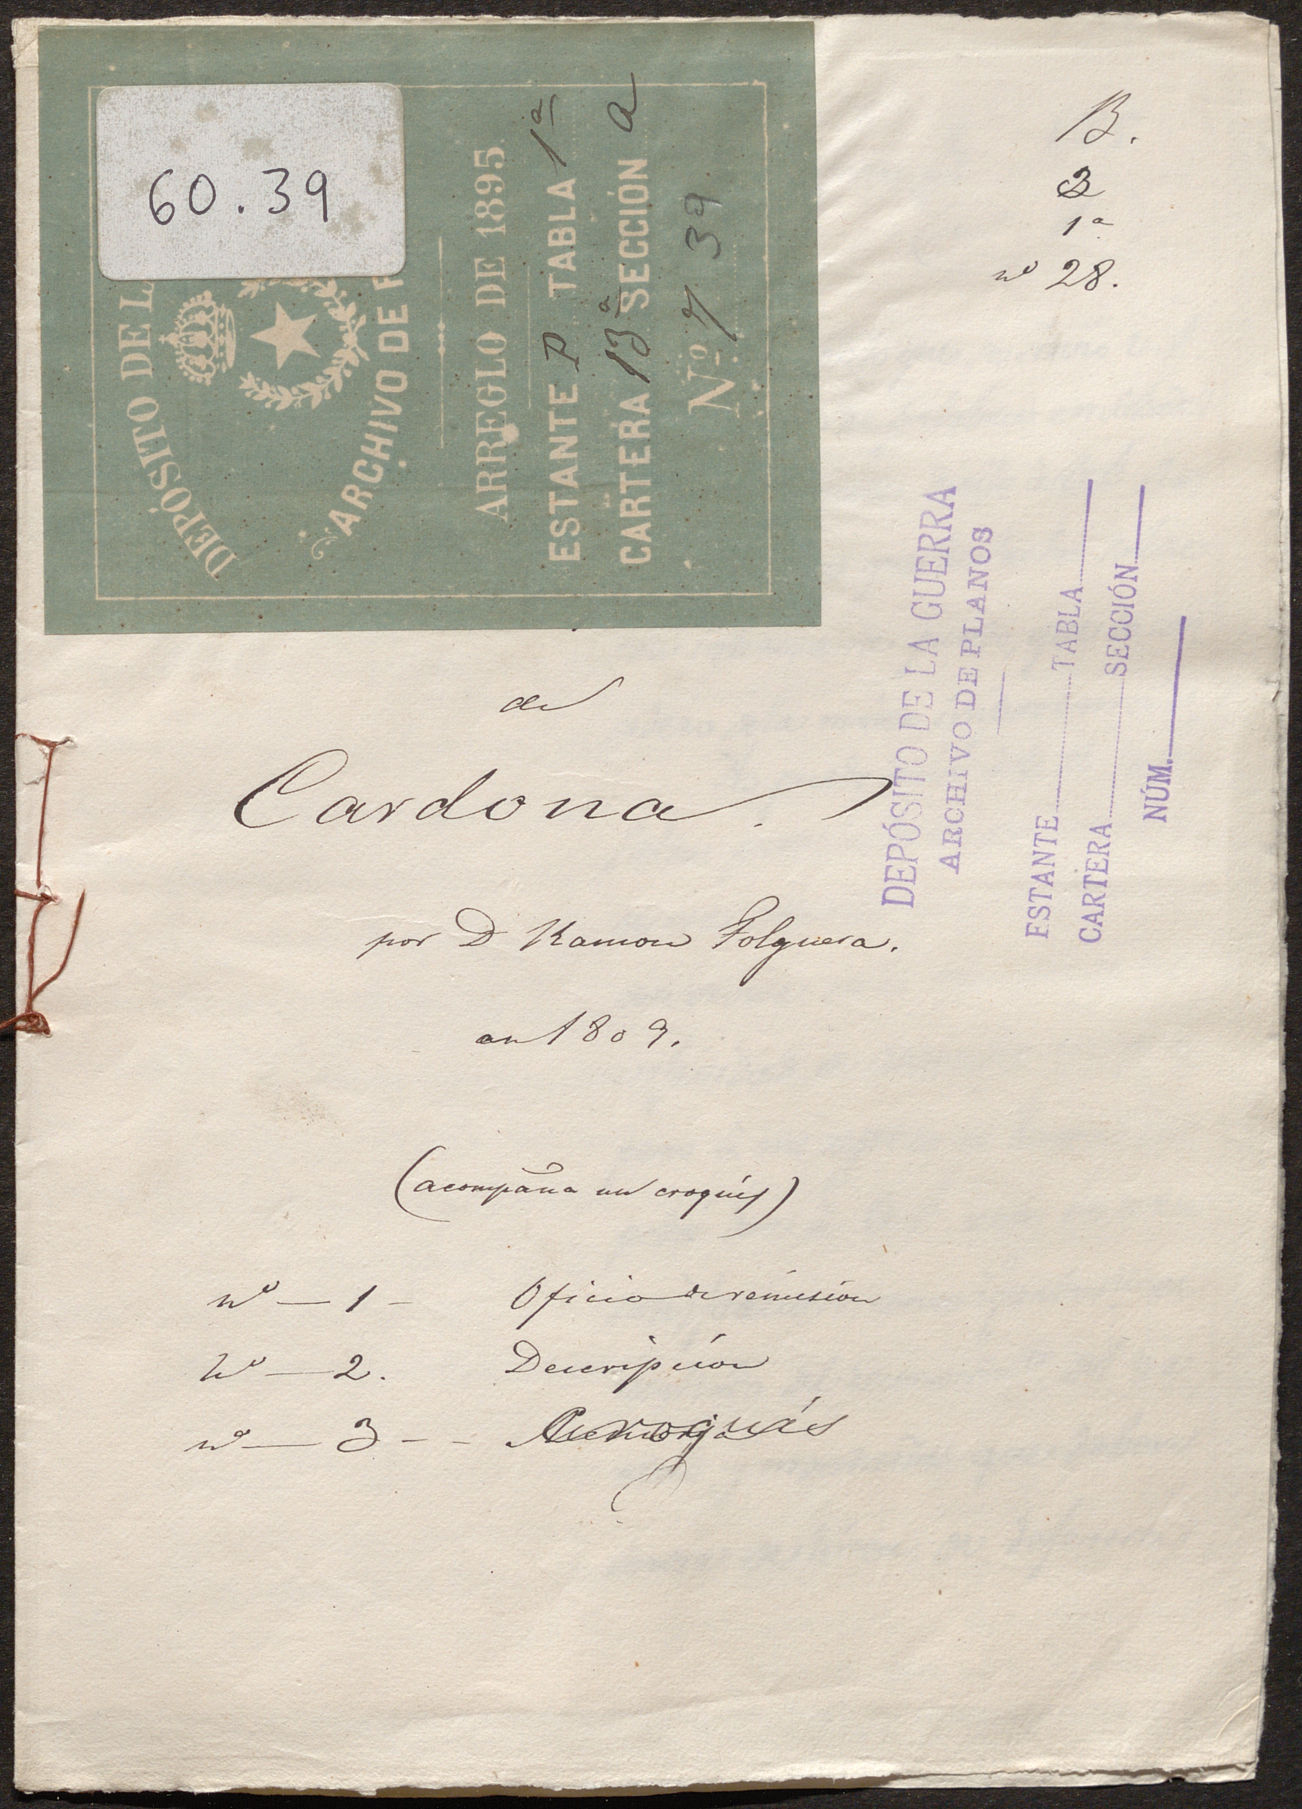 60.39
DEPÓSITO DE L
ARCHIVO DE
ARREGLO DE 1895
ESTANTE P TABLA 1ª
CARTERA 13ª SECCIÓN a
Nº 7 39
B.
3
1ª
nº 28.
DEPÓSITO DE LA GUERRA
ARCHIVO DE PLANOS
ESTANTE TABLA
CARTERA SECCIÓN
NÚM.
de
Cardona.
por D Ramon Folguera.
en 1809.
(acompaña un croquis)
nº — 1 - Oficio de remisión
nº — 2. Descripción
nº — 3 - - Croquis